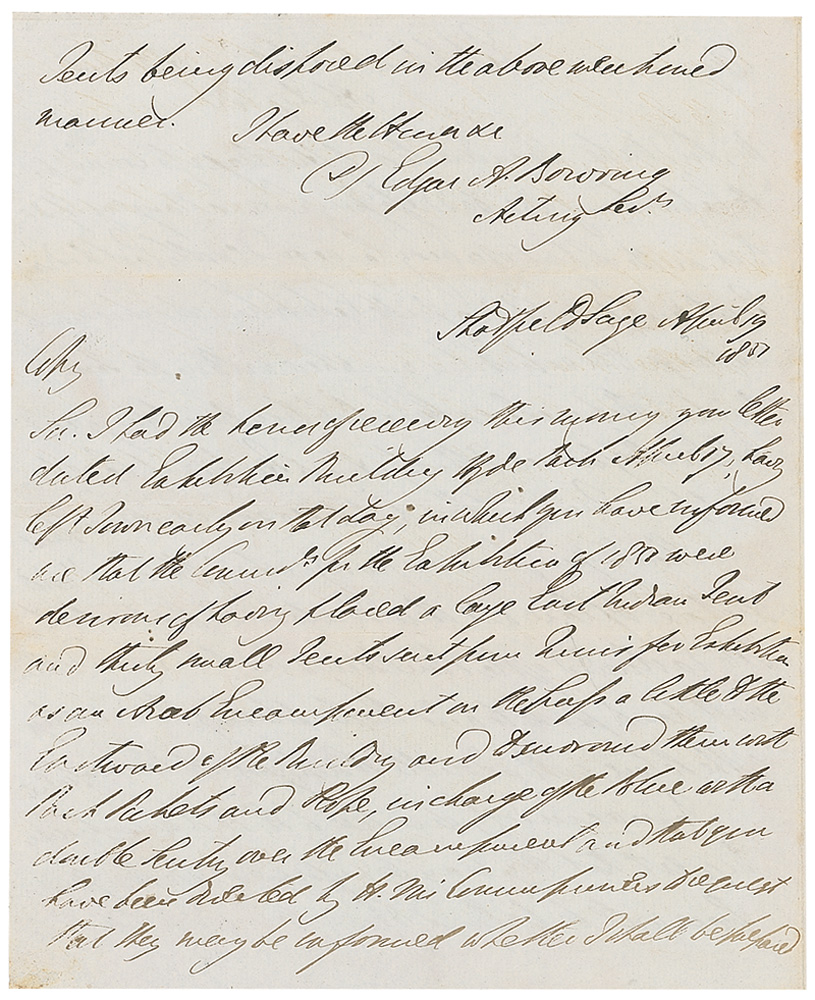 Tents being disposed in the above mentioned
manner. I have the Honor &c
(S) Edgar A. Bowring
Acting Secy
Stratfield Saye April 19
1851
Copy
Sir. I had the honor of receiving this morning your letter
dated Exhibition Building Hyde Park April 17, having
left Town early on that day, in which you have informed
me that the Commrs for the Exhibition of 1851 were
desirous of having placed a large East Indian Tent
and thirty small Tents sent from Tunis for Exhibition
as an Arab Encampment on the Grass a little to the
Eastward of the Building and to surround them with
Park and Rope, in charge of the Police with a
double Sentry over the Encampment and that you
have been directed by H. M's Commissioners to request
that they may be informed whether I shall be prepared